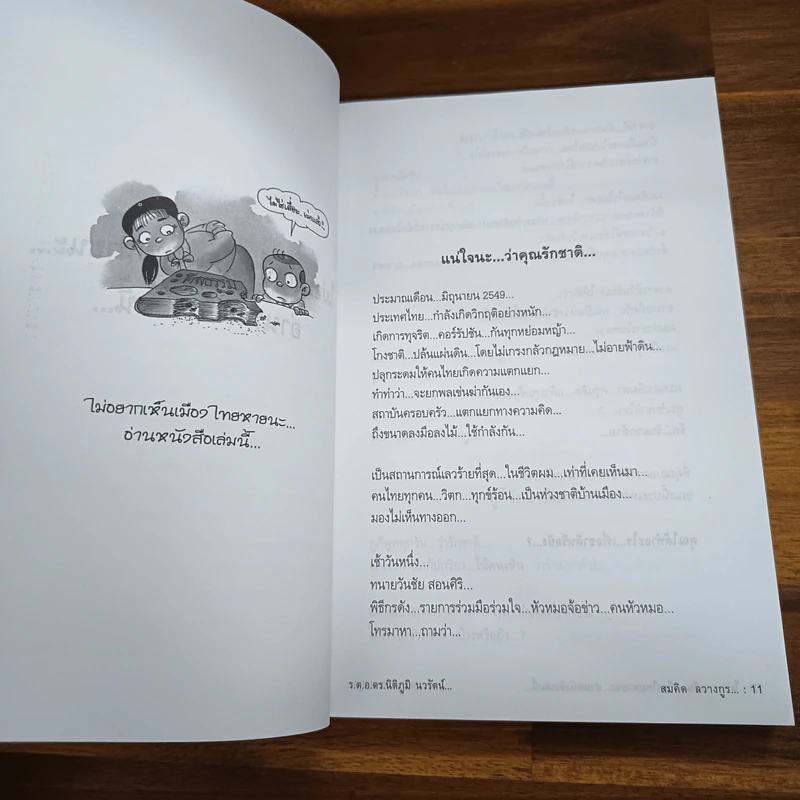 ไม่ใช่เสี่ยะ.. เน่าแล้ว!
ไม่อยากเห็นเมืองไทยหายนะ...
อ่านหนังสือเล่มนี้...
แน่ใจนะ...ว่าคุณรักชาติ...
ประมาณเดือน...มิถุนายน 2549...
ประเทศไทย...กำลังเกิดวิกฤติอย่างหนัก...
เกิดการทุจริต...คอร์รัปชัน...กันทุกหย่อมหญ้า...
โกงชาติ...ปล้นแผ่นดิน...โดยไม่เกรงกลัวกฎหมาย...ไม่อายฟ้าดิน...
ปลุกระดมให้คนไทยเกิดความแตกแยก...
ทำท่าว่า...จะยกพลเข่นฆ่ากันเอง...
สถาบันครอบครัว...แตกแยกทางความคิด...
ถึงขนาดลงมือลงไม้...ใช้กำลังกัน...
เป็นสถานการณ์เลวร้ายที่สุด...ในชีวิตผม...เท่าที่เคยเห็นมา...
คนไทยทุกคน...วิตก...ทุกข์ร้อน...เป็นห่วงชาติบ้านเมือง...
มองไม่เห็นทางออก...
เช้าวันหนึ่ง...
ทนายวันชัย สอนศิริ...
พิธีกรดัง...รายการร่วมมือร่วมใจ...หัวหมอจ้อข่าว...คนหัวหมอ...
โทรมาหา...ถามว่า...
ร.ต.อ.ดร.นิติภูมิ นวรัตน์...
สมคิด ลวางกูร... : 11